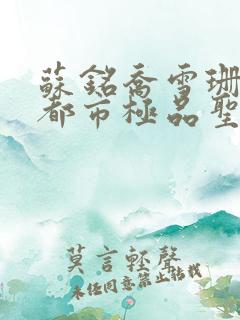 蘇銘喬雪珊
都市極品聖
莫言輕聲
未任同意禁止轉載